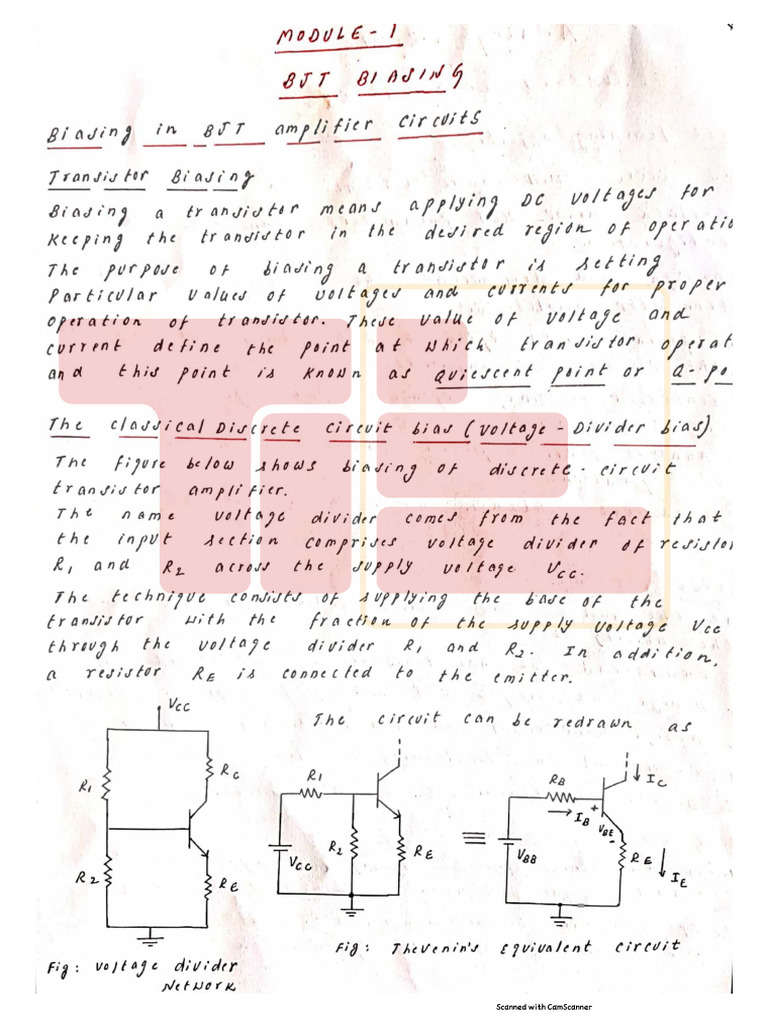 MODULE - 1
BJT BIASING
Biasing in BJT amplifier circuits
Transistor Biasing
Biasing a transistor means applying DC voltages for
keeping the transistor in the desired region of operatio
The purpose of biasing a transistor is setting
particular values of voltages and currents for proper
operation of transistor. These value of voltage and
current define the point at which transistor operat
and this point is known as Quiescent point or Q-po
The classical Discrete circuit bias (Voltage - Divider bias)
The figure below shows biasing of discrete - circuit
transistor amplifier.
The name voltage divider comes from the fact that
the input section comprises voltage divider of resistor
R1 and R2 across the supply voltage VCC.
The technique consists of supplying the base of the
transistor with the fraction of the supply voltage VCC
through the voltage divider R1 and R2. In addition,
a resistor RE is connected to the emitter.
The circuit can be redrawn as
VCC
R1
RC
R2
RE
R1
R2
VCC
RE
RB
IC
IB
+
VBE
-
VBB
RE
IE
Fig: Voltage divider
Network
Fig: Thevenin's Equivalent circuit
Scanned with CamScanner